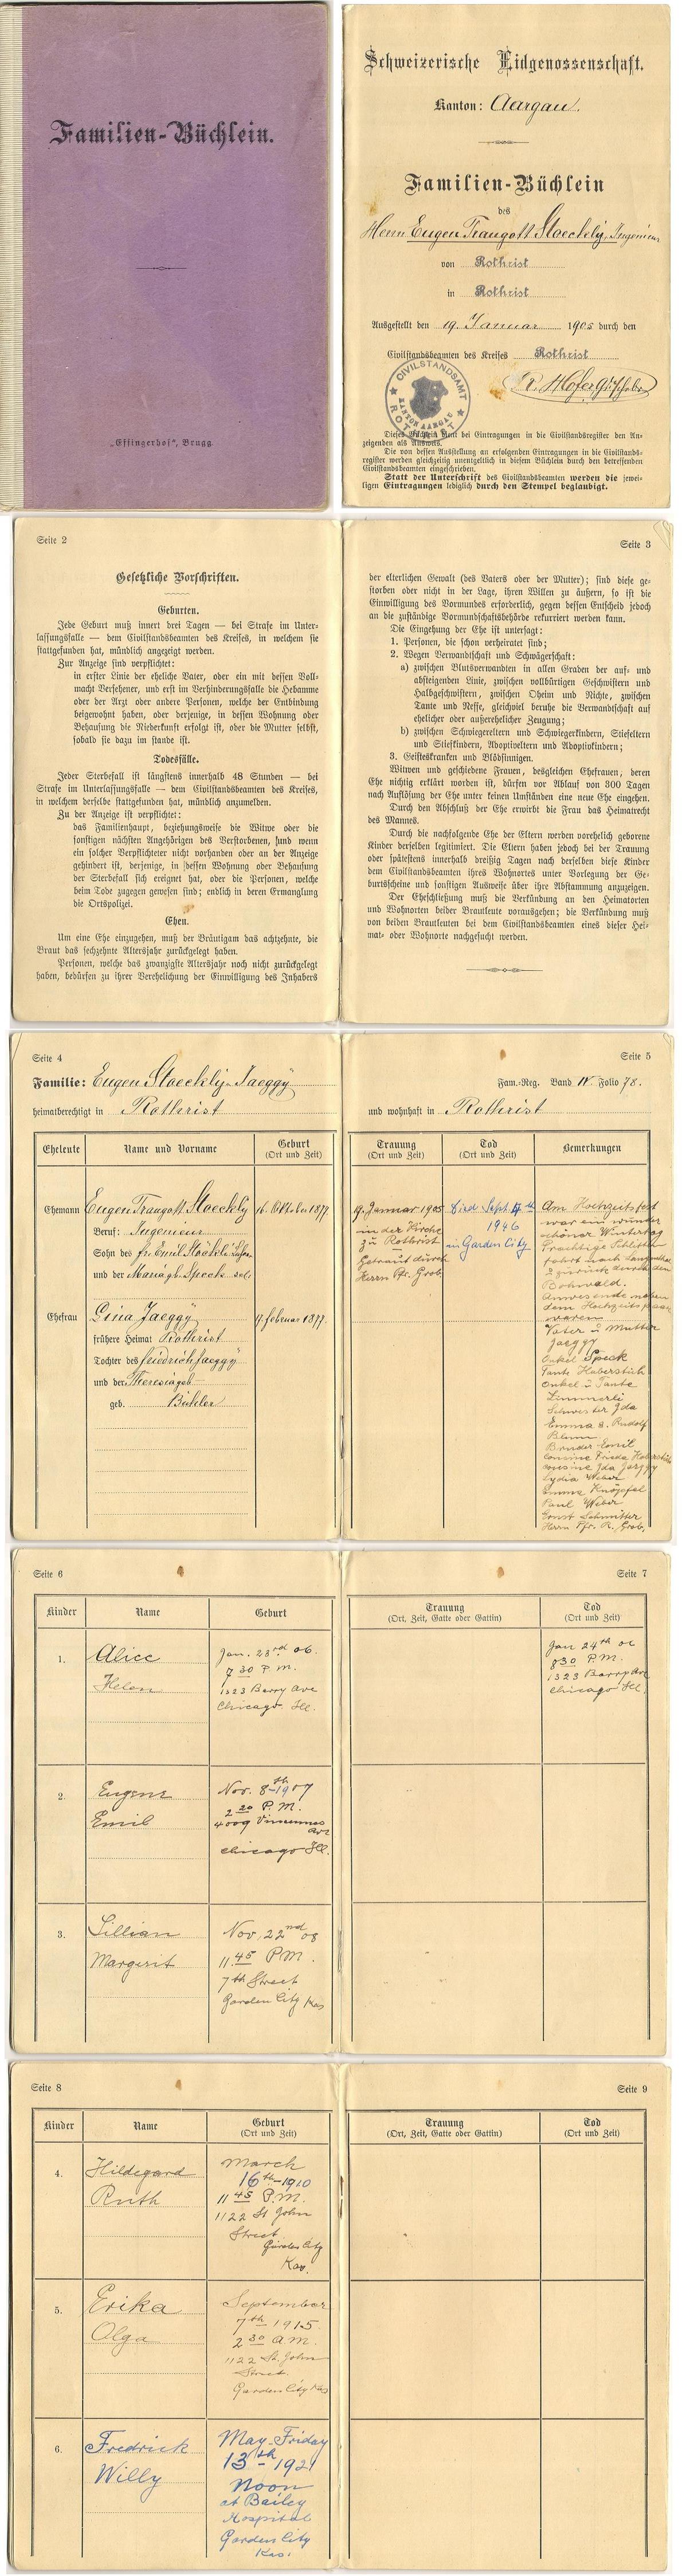 Familien-Büchlein.
„Effingerhof“, Brugg.
Schweizerische Eidgenossenschaft.
Kanton: Aargau.
Familien-Büchlein
des
Herrn Eugen Traugott Stoeckly, Ingenieur
von Rothrist
in Rothrist
Ausgestellt den 19. Januar 1905 durch den
Civilstandsbeamten des Kreises Rothrist
CIVILSTANDSAMT
KANTON AARGAU
ROTHRIST
Dieses Büchlein dient bei Eintragungen in die Civilstandsregister den An-
zeigenden als Ausweis.
Die von dessen Ausstellung an erfolgenden Eintragungen in die Civilstands-
register werden gleichzeitig unentgeltlich in diesem Büchlein durch den betreffenden
Civilstandsbeamten eingeschrieben.
Statt der Unterschrift des Civilstandsbeamten werden die jewei-
ligen Eintragungen lediglich durch den Stempel beglaubigt.
Seite 2
Gesetzliche Vorschriften.
Geburten.
Jede Geburt muß innert drei Tagen — bei Strafe im Unter-
lassungsfalle — dem Civilstandsbeamten des Kreises, in welchem sie
stattgefunden hat, mündlich angezeigt werden.
Zur Anzeige sind verpflichtet:
in erster Linie der eheliche Vater, oder ein mit dessen Voll-
macht Versehener, und erst im Verhinderungsfalle die Hebamme
oder der Arzt oder andere Personen, welche der Entbindung
beigewohnt haben, oder derjenige, in dessen Wohnung oder
Behausung die Niederkunft erfolgt ist, oder die Mutter selbst,
sobald sie dazu im stande ist.
Todesfälle.
Jeder Sterbefall ist längstens innerhalb 48 Stunden — bei
Strafe im Unterlassungsfalle — dem Civilstandsbeamten des Kreises,
in welchem derselbe stattgefunden hat, mündlich anzumelden.
Zu der Anzeige ist verpflichtet:
das Familienhaupt, beziehungsweise die Witwe oder die
sonstigen nächsten Angehörigen des Verstorbenen, und wenn
ein solcher Verpflichteter nicht vorhanden oder an der Anzeige
gehindert ist, derjenige, in dessen Wohnung oder Behausung
der Sterbefall sich ereignet hat, oder die Personen, welche
beim Tode zugegen gewesen sind; endlich in deren Ermanglung
die Ortspolizei.
Ehen.
Um eine Ehe einzugehen, muß der Bräutigam das achtzehnte, die
Braut das sechzehnte Altersjahr zurückgelegt haben.
Personen, welche das zwanzigste Altersjahr noch nicht zurückgelegt
haben, bedürfen zu ihrer Verehelichung der Einwilligung des Inhabers
Seite 3
der elterlichen Gewalt (des Vaters oder der Mutter); sind diese ge-
storben oder nicht in der Lage, ihren Willen zu äußern, so ist die
Einwilligung des Vormundes erforderlich, gegen dessen Entscheid jedoch
an die zuständige Vormundschaftsbehörde rekurriert werden kann.
Die Eingehung der Ehe ist untersagt:
1. Personen, die schon verheiratet sind;
2. Wegen Verwandtschaft und Schwägerschaft:
a) zwischen Blutsverwandten in allen Graden der auf- und
absteigenden Linie, zwischen vollbürtigen Geschwistern und
Halbgeschwistern, zwischen Oheim und Nichte, zwischen
Tante und Neffe, gleichviel beruhe die Verwandtschaft auf
ehelicher oder außerehelicher Zeugung;
b) zwischen Schwiegereltern und Schwiegerkindern, Stiefeltern
und Stiefkindern, Adoptiveltern und Adoptivkindern;
3. Geisteskranken und Blödsinnigen.
Witwen und geschiedene Frauen, desgleichen Ehefrauen, deren
Ehe nichtig erklärt worden ist, dürfen vor Ablauf von 300 Tagen
nach Auflösung der Ehe unter keinen Umständen eine neue Ehe eingehen.
Durch den Abschluß der Ehe erwirbt die Frau das Heimatrecht
des Mannes.
Durch die nachfolgende Ehe der Eltern werden vorehelich geborene
Kinder derselben legitimiert. Die Eltern haben jedoch bei der Trauung
oder spätestens innerhalb dreißig Tagen nach derselben diese Kinder
dem Civilstandsbeamten ihres Wohnortes unter Vorlegung der Ge-
burtscheine und sonstigen Ausweise über ihre Abstammung anzuzeigen.
Der Eheschließung muß die Verkündung an den Heimatorten
und Wohnorten beider Brautleute vorausgehen; die Verkündung muß
von beiden Brautleuten bei dem Civilstandsbeamten eines dieser Hei-
mat- oder Wohnorte nachgesucht werden.
Seite 4
Familie: Eugen Stoeckly-Jaeggy
heimatberechtigt in Rothrist
Eheleute
Name und Vorname
Geburt
(Ort und Zeit)
Ehemann
Eugen Traugott Stoeckly
16. Oktober 1877
Beruf: Ingenieur
Sohn des
und der Maria gb. Speck
Ehefrau
Lina Jaeggy
17. Februar 1877.
frühere Heimat Rothrist
Tochter des Friedrich Jaeggy
und der Theresia geb.
geb. Bühler
Seite 5
Fam.-Reg. Band IV. Folio 78.
und wohnhaft in Rothrist
Trauung
(Ort und Zeit)
Tod
(Ort und Zeit)
Bemerkungen
19. Januar 1905
in der Kirche
zu Rothrist
Getraut durch
Herrn Pfr. Grob.
Died Sept. 17th
1946
in Garden City
Am Hochzeitsfest
war ein wunder
schöner Wintertag
Prachtige Schlitten
fahrt nach Langenthal
u zurück durch den
Bohwald.
Anwesende neben
dem Hochzeitspaar
waren
Vater u Mutter
Jaeggy
Onkel Speck
Tante Haberstich
Onkel u Tante
Zimmerli
Schwester Ida
Emma & Rudolf
Blum
Bruder Emil
Cousine Frieda Haberstich
cousine Ida Jaeggy
Lydia Weber
Emma Knöpfel
Paul Weber
Ernst Schmitter
Herrn Pfr. R. Grob.
Seite 6
Kinder
Name
Geburt
1.
Alice
Helen
Jan. 23rd 06.
7 30 P.M.
1323 Barry Ave
Chicago Ill.
2.
Eugene
Emil
Nov. 8th 1907
2 20 P.M.
4009 Vincennes
Ave
Chicago Ill.
3.
Lillian
Margerit
Nov. 22nd 08
11.45 P.M.
7th Street
Garden City Kas
Seite 7
Trauung
(Ort, Zeit, Gatte oder Gattin)
Tod
(Ort und Zeit)
Jan 24th 06
8 30 P.M.
1323 Barry Ave
Chicago Ill.
Seite 8
Kinder
Name
Geburt
(Ort und Zeit)
4.
Hildegard
Ruth
March
16th-1910
11 45 P.M.
1122 St John
Street
Garden City
Kas.
5.
Erika
Olga
September
7th 1915.
2 30 a M.
1122 St. John
Street.
Garden City Kas
6.
Fredrick
Willy
May-Friday
13th-1921
Noon
at Bailey
Hospital
Garden City
Kas.
Seite 9
Trauung
(Ort, Zeit, Gatte oder Gattin)
Tod
(Ort und Zeit)